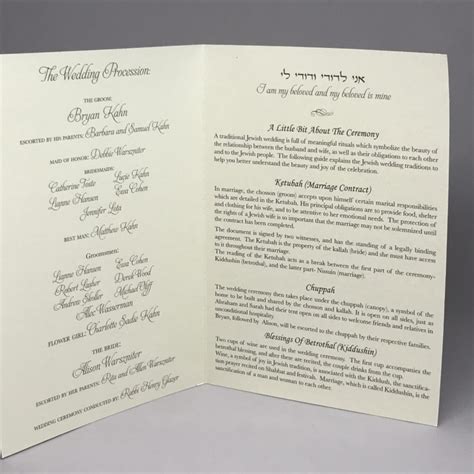 The Wedding Procession:
THE GROOM:
Bryan Kahn
ESCORTED BY HIS PARENTS: Barbara and Samuel Kahn
MAID OF HONOR: Debbie Warszniter
BRIDESMAIDS:
Catherine Toute Lucie Kahn
Lianne Hansen Eva Cohen
Jennifer Lota
BEST MAN: Matthew Kahn
GROOMSMEN:
Lianne Hansen Eva Cohen
Robert Lauher Derek Wood
Andrew Shotler Michael Offf
Alec Wasserman
FLOWER GIRL: Charlotte Sadie Kahn
THE BRIDE:
Alison Warszniter
ESCORTED BY HER PARENTS: Rita and Allen Warszniter
WEDDING CEREMONY CONDUCTED BY: Rabbi Henry Glazer
אני לדודי ודודי לי
I am my beloved and my beloved is mine
A Little Bit About The Ceremony
A traditional Jewish wedding is full of meaningful rituals which symbolize the beauty of
the relationship between the husband and wife, as well as their obligations to each other
and to the Jewish people. The following guide explains the Jewish wedding traditions to
help you better understand the beauty and joy of the celebration.
Ketubah (Marriage Contract)
In marriage, the chosson (groom) accepts upon himself certain marital responsibilities
which are detailed in the Ketubah. His principal obligations are to provide food, shelter
and clothing for his wife, and to be attentive to her emotional needs. The protection of
the rights of a Jewish wife is so important that the marriage may not be solemnized until
the contract has been completed.
The document is signed by two witnesses, and has the standing of a legally binding
agreement. The Ketubah is the property of the kallah (bride) and she must have access
to it throughout their marriage.
The reading of the Ketubah acts as a break between the first part of the ceremony-
Kiddushin (betrothal), and the latter part- Nissuin (marriage).
Chuppah
The wedding ceremony then takes place under the chuppah (canopy), a symbol of the
home to be built and shared by the chosson and kallah. It is open on all sides, just as
Abraham and Sarah had their tent open on all sides to welcome friends and relatives in
unconditional hospitality.
Bryan, followed by Alison, will be escorted to the chuppah by their respective parents.
Blessings Of Betrothal (Kiddushin)
Two cups of wine are used in the wedding ceremony. The first cup accompanies the
betrothal blessings, and after these are recited, the couple drinks from the cup.
Wine, a symbol of joy in Jewish tradition, is associated with the Kiddush, the sanctifica-
tion prayer recited on Shabbat and festivals. Marriage, which is called Kiddushin, is the
sanctification of a man and woman to each other.